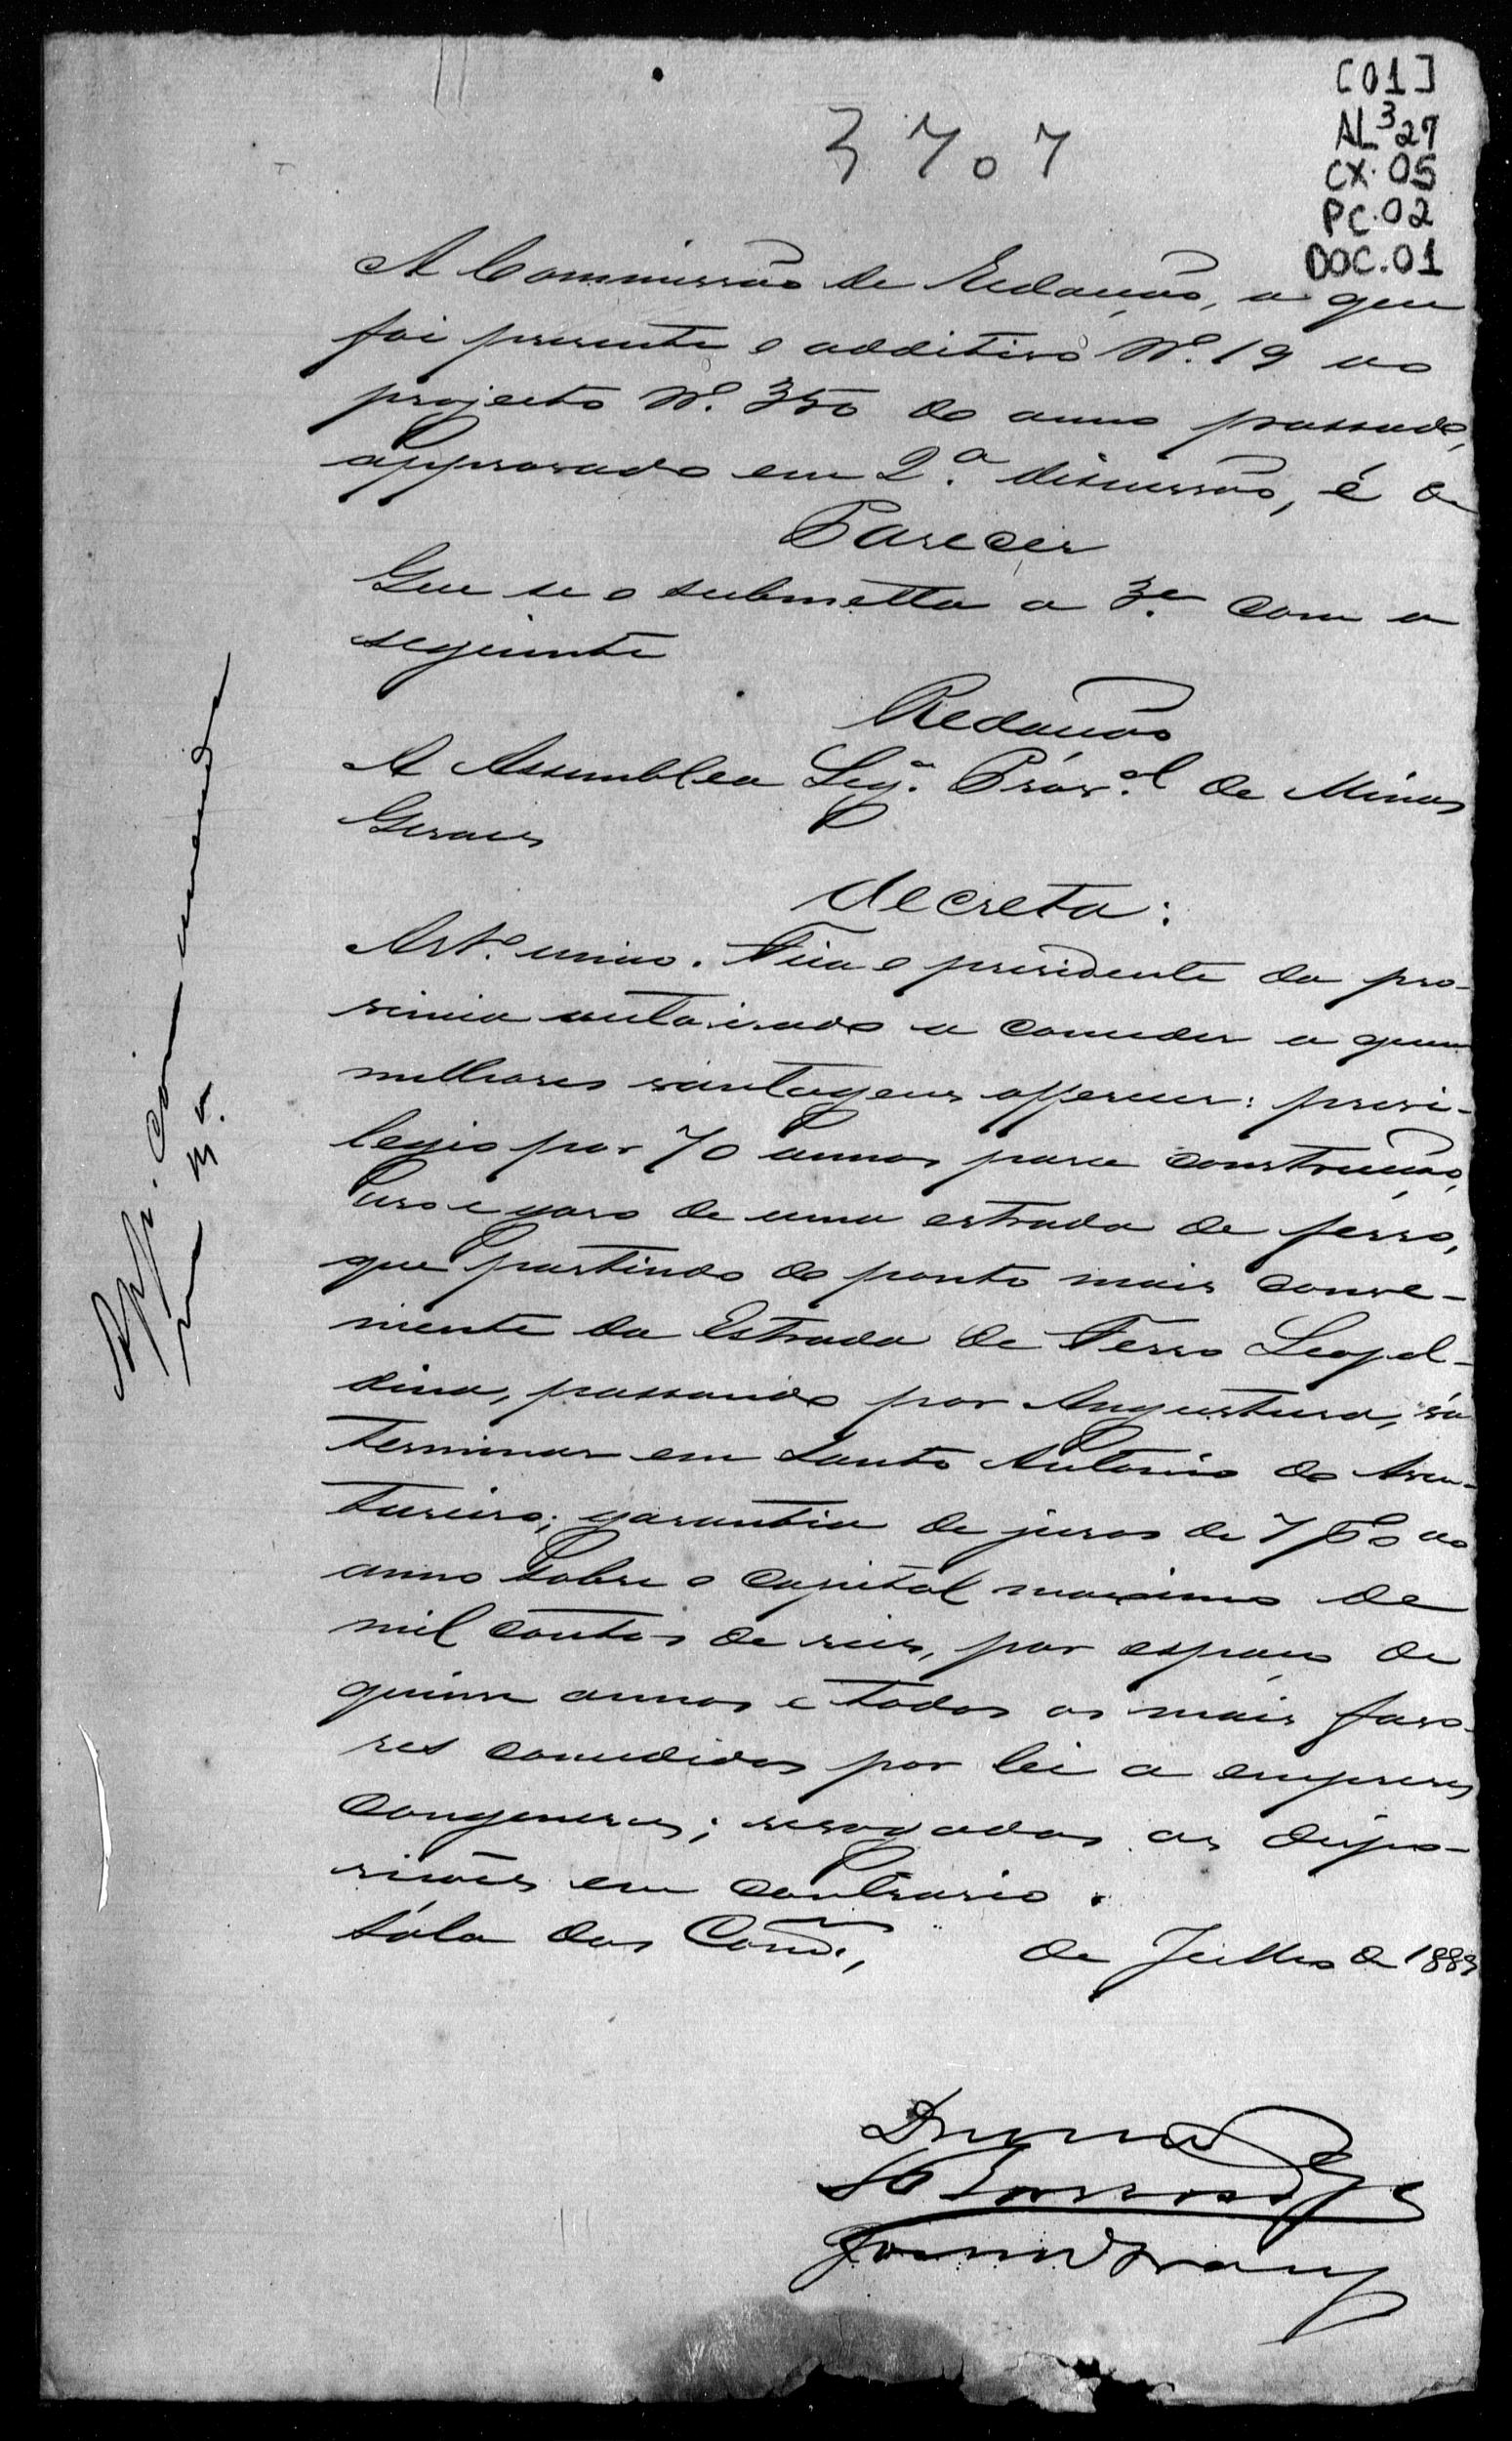 [01]
AL 3 27
CX. 05
PC. 02
DOC. 01
3707
A Commissão de Redacção, a que
foi presente o additivo Nº. 19 ao
projecto Nº. 350 do anno passado,
approvado em 2.ª discussão, é de
Parecer
Que se o submetta a 3.ª com a
seguinte
Redacção
A Assemblea Leg.ª Prov.al de Minas
Geraes
decreta:
Art.º unico. Fica o presidente da pro-
vincia autorisado a conceder a quem
melhores vantagens offerecer: privi-
legio por 70 annos para construcção,
uso e goso de uma estrada de ferro,
que partindo do ponto mais conve-
niente da Estrada de Ferro Leopol-
dina, passando por Angustura, vá
terminar em Santo Antonio do Aven-
tureiro; garantia de juros de 7 p% ao
anno sobre o capital maximo de
mil contos de reis, por espaço de
quinze annos e todos os mais favo-
res concedidos por lei a emprezas
congeneres; revogadas as dispo-
sicões em contrario.
Sala das Com.,      de Julho de 1883
App. Com emenda
em 3.ª